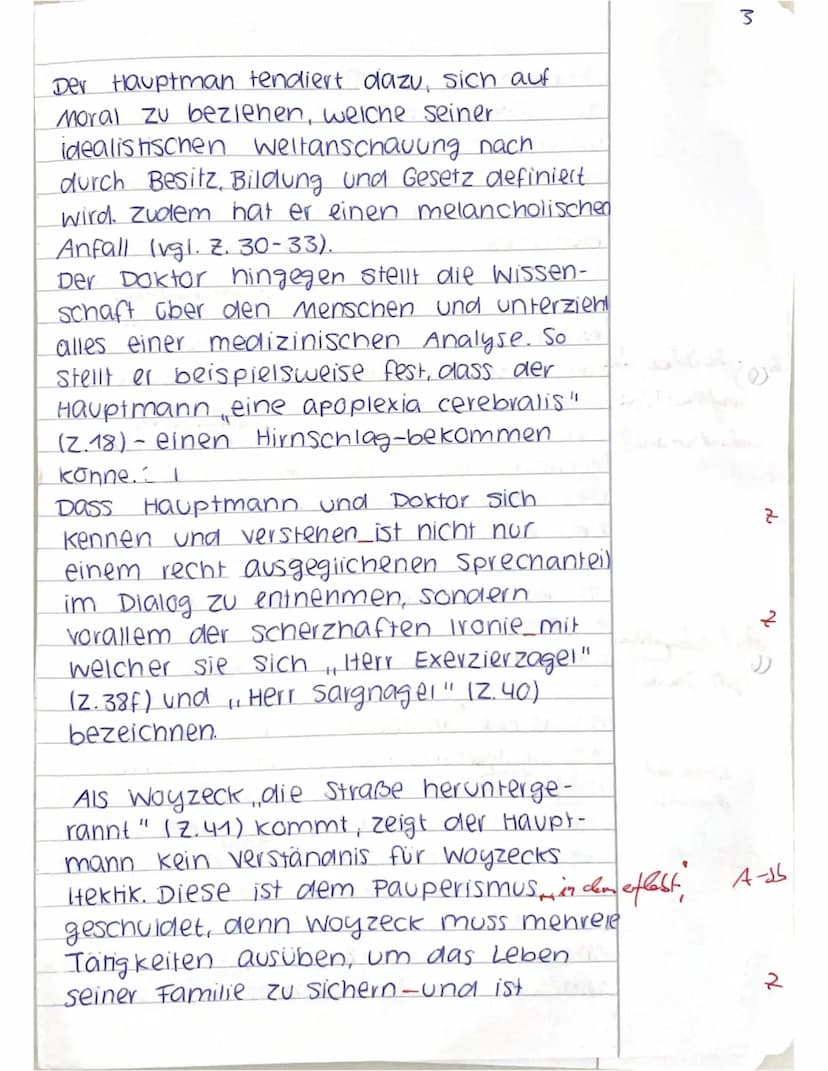 3
Der Hauptman tendiert dazu, sich auf
Moral zu beziehen, welche seiner
idealistischen Weltanschauung nach
durch Besitz, Bildung und Gesetz definiert
wird. Zudem hat er einen melancholischen
Anfall (vgl. Z. 30-33).
Der Doktor hingegen stellt die Wissen-
schaft über den Menschen und unterzieht
alles einer medizinischen Analyse. So
stellt er beispielsweise fest, dass der
Hauptmann „eine apoplexia cerebralis"
(Z.18) - einen Hirnschlag-bekommen
könne.
Dass Hauptmann und Doktor sich
kennen und verstehen_ist nicht nur Z
einem recht ausgeglichenen Sprechanteil
im Dialog zu entnehmen, sondern
vorallem der scherzhaften Ironie_mit Z
welcher sie sich „Herr Exerzierzagel"
(Z.38f) und „Herr Sargnagel" (Z.40)
bezeichnen.
Als Woyzeck „die Straße herunterge-
rannt" (Z.41) kommt, zeigt der Haupt-
mann kein Verständnis für Woyzecks
Hektik. Diese ist dem Pauperismus „in dem er lebt", A-Sb
geschuldet, denn Woyzeck muss mehrere
Tätigkeiten ausüben, um das Leben
seiner Familie zu sichern-und ist Z